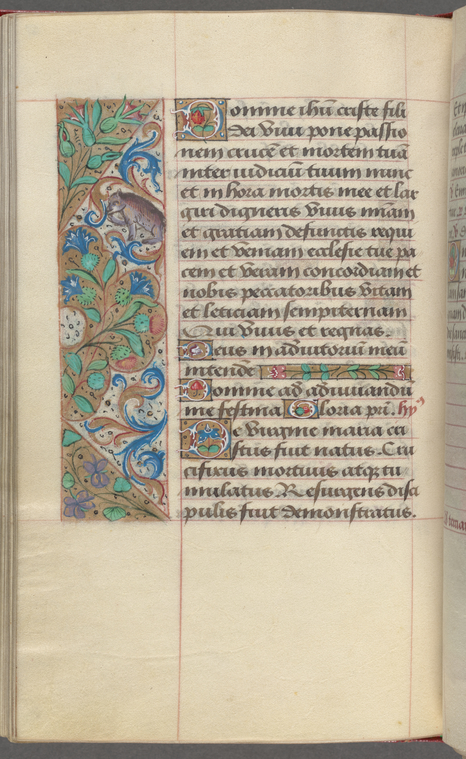 Domine ihu criste fili
dei viui pone passio
nem crucē et mortem tuā
inter iudiciū tuum nunc
et in hora mortis mee et lar
giri digneris viuis miāʒ
et gratiam defunctis requi
em et veniam ecclesie tue pa
cem et veram concordiam et
nobis peccatoribus vitam
et leticiam sempiternam
Qui viuis et regnas.
Deus in adiutoriū meū
intende
Domine ad adiuuandū
me festina Gloria pri. hyꝰ
De virgine maria cri
stus fuit natus. Cru
cifixus mortuus atqʒ tu
mulatus. Resurgens disci
pulis fuit demonstratus.